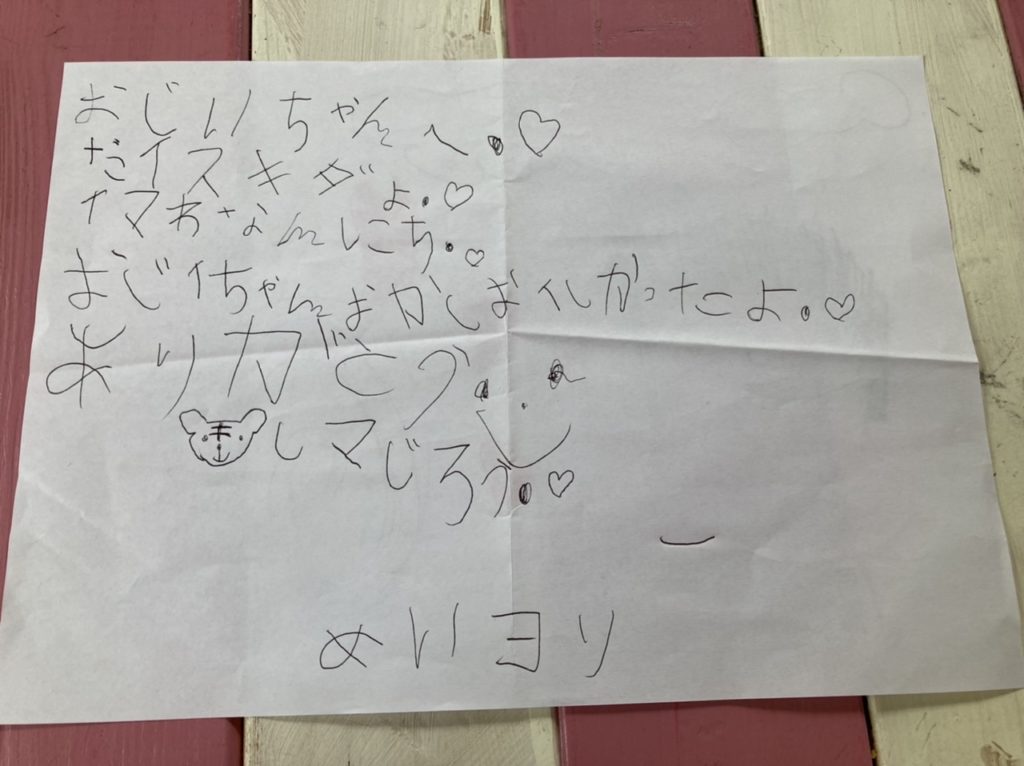 おじいちゃんへ.♡
だイスキダよ.♡
イマわなんにち.♡
おじイちゃんおかしおイしかったよ.♡
ありガとう.
しマじろう.♡
めいヨリ